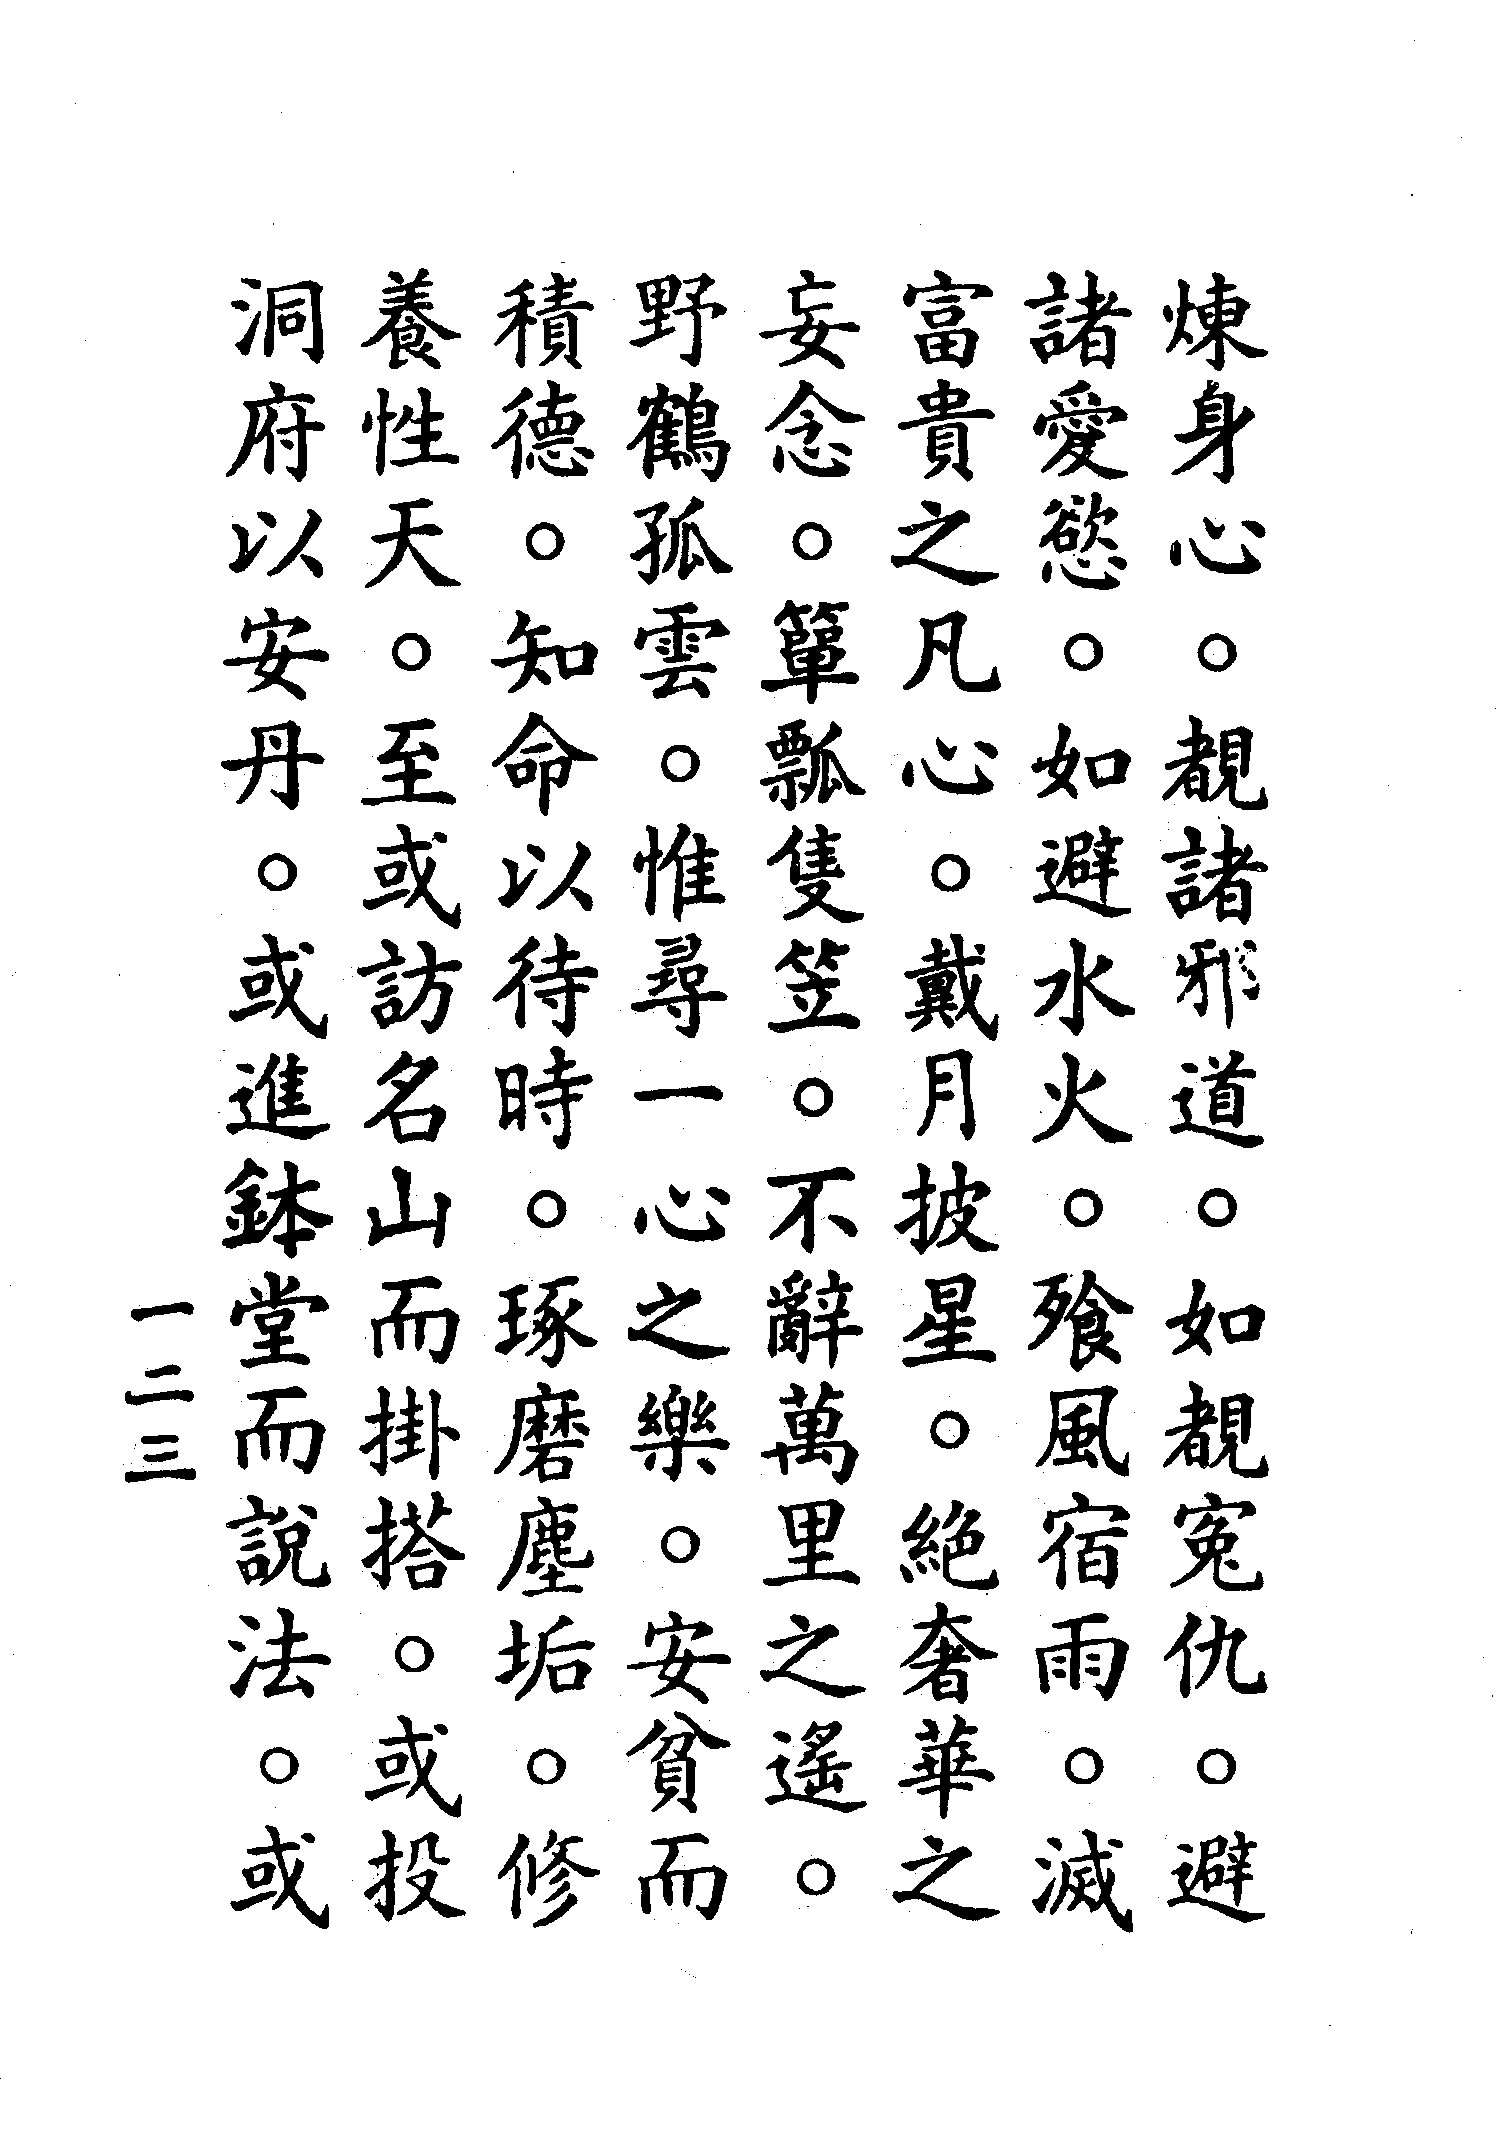 煉身心。覩諸邪道。如覩寃仇。避
諸愛慾。如避水火。飱風宿雨。滅
富貴之凡心。戴月披星。絕奢華之
妄念。簞瓢隻笠。不辭萬里之遙。
野鶴孤雲。惟尋一心之樂。安貧而
積德。知命以待時。琢磨塵垢。修
養性天。至或訪名山而掛搭。或投
洞府以安丹。或進鉢堂而說法。或
一二三